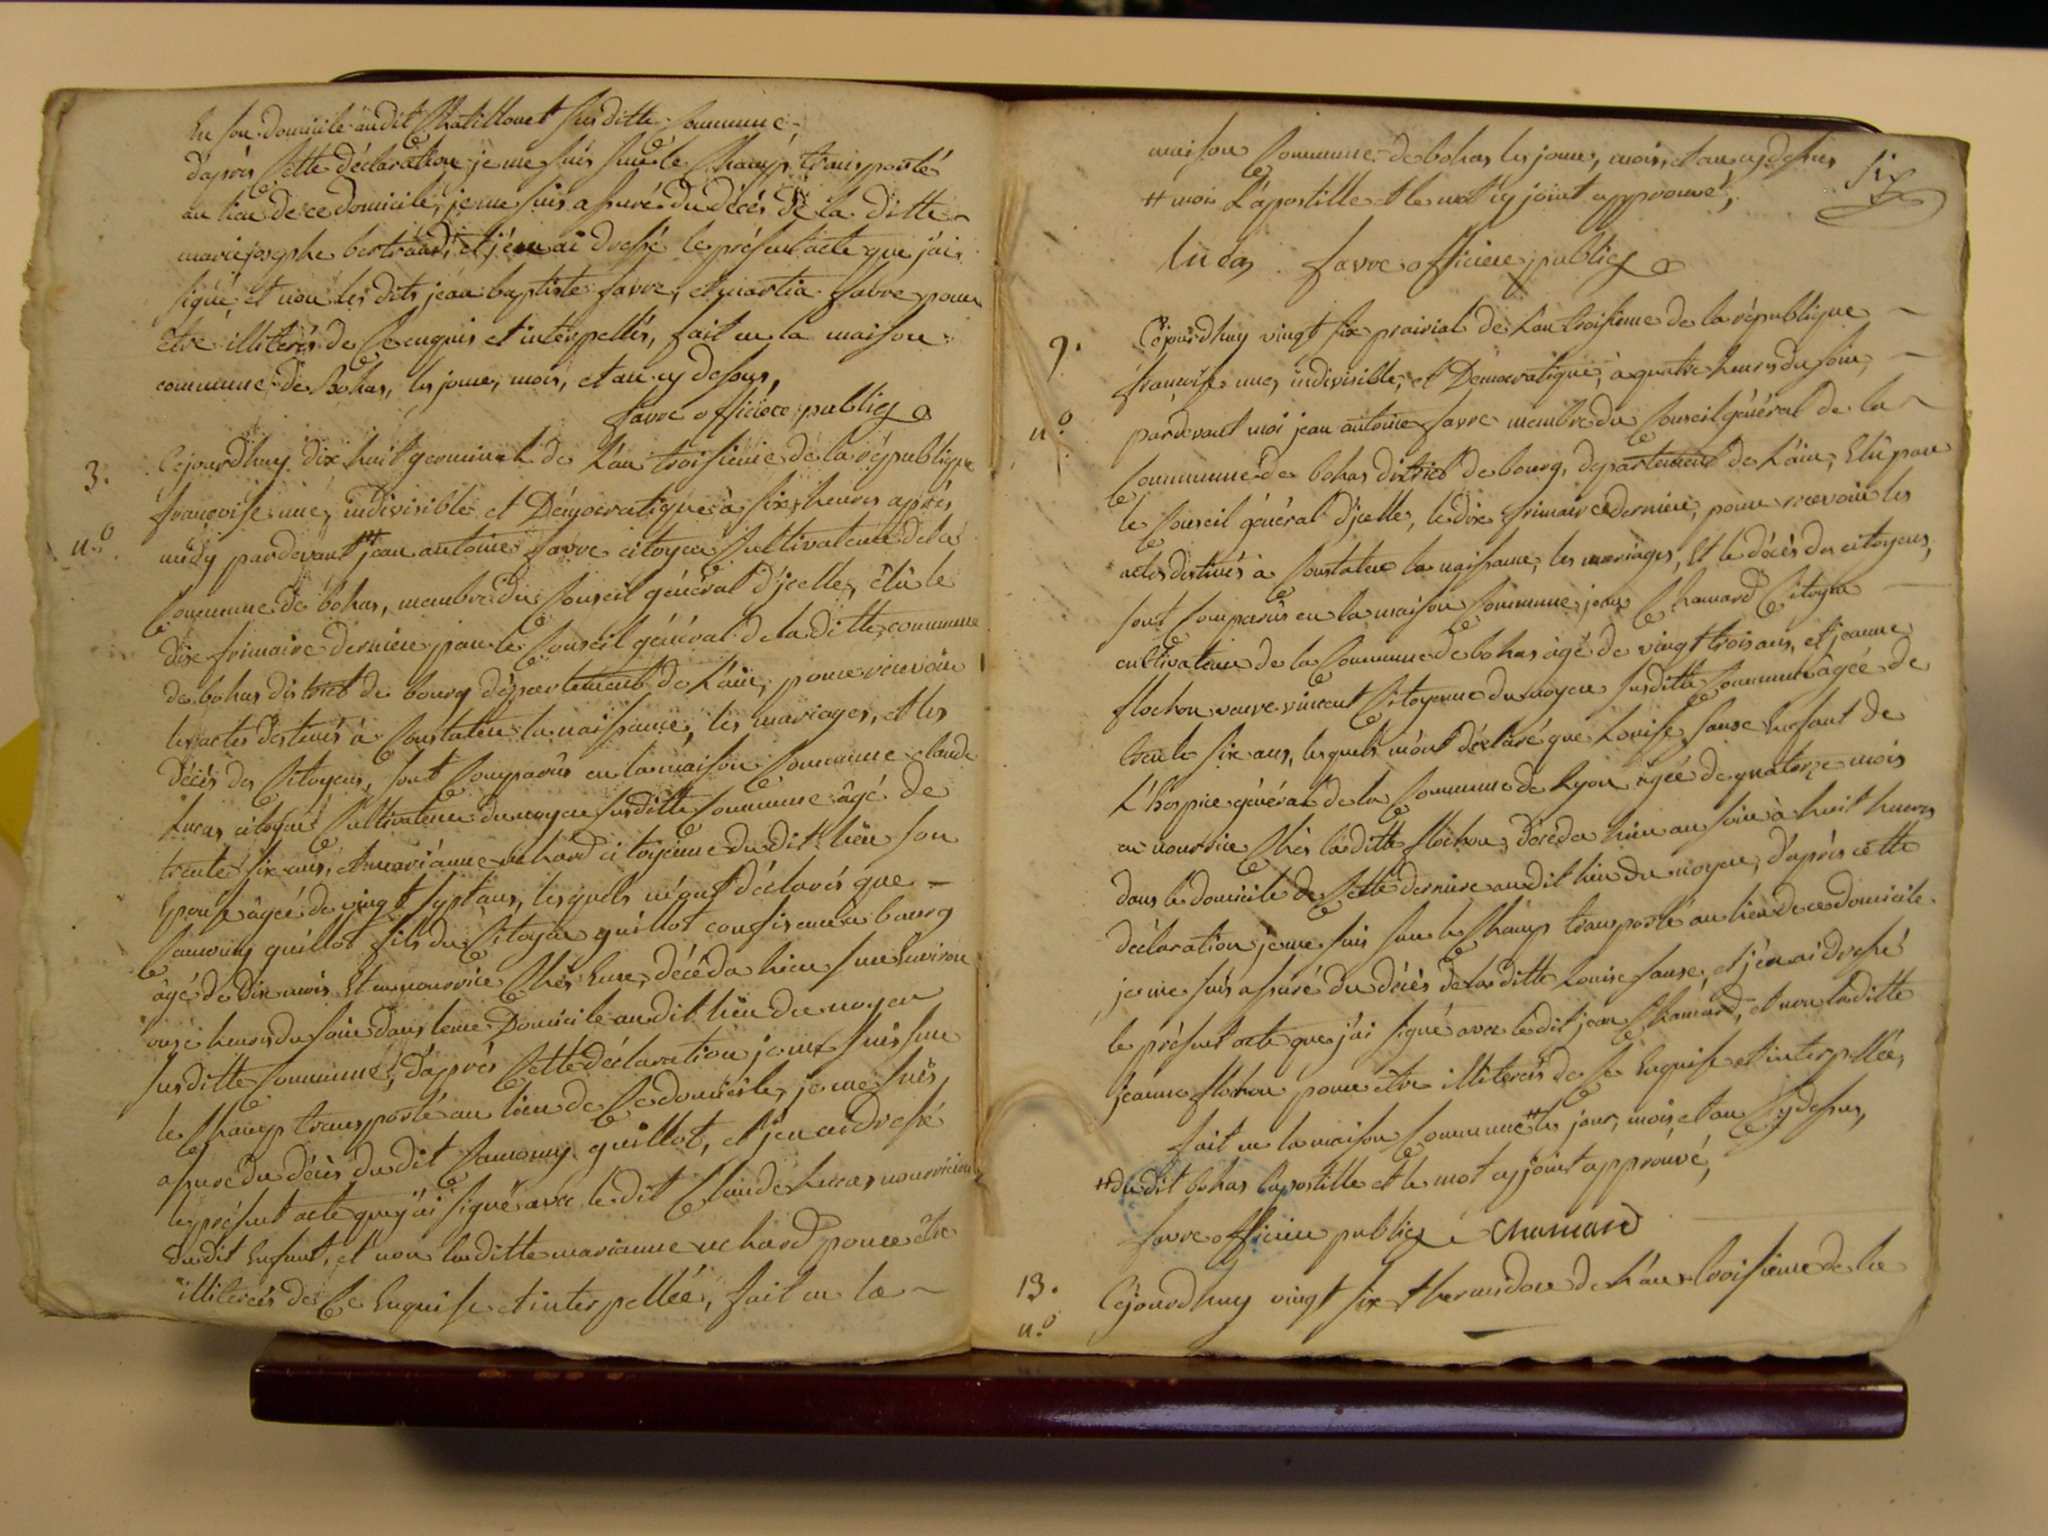 en son domicile audit Chatillonet susditte Commune,
d'après Cette déclaration je me suis sur le Champ transporté
au lieu de ce domicile, je me suis assuré du décès de la ditte
marie josephe bertrand, et j'en ai dressé le présent acte que j'ai
signé, et non les dits jean baptiste favre, et martin fabre pour
être illiterés de Ce enquis et interpellés, fait en la maison
commune de Bohas, les jour, mois, et an cy dessus,
favre officier public
3.
n.o
Cejourdhuy dix huit germinal de L'an troisieme de la république
françoise une, indivisible et Démocratique à six heures après
midy pardevant # jean antoine favre citoyen Cultivateur de la
Commune de bohas, membre du Conseil général d'jcelle, élû le
dix frimaire dernier par le Conseil général de la ditte commune
de bohas district de bourg département de L'ain, pour recevoir
les actes destinés à Constater la naissance, les mariages, et les
décès des Citoyens, sont Comparûs en la maison Commune claude
Lucas citoyen Cultivateur du noyer susditte Commune âgé de
trente six ans, et marianne richard citoyenne du dit lieu son
Epouse âgée de vingt sept ans, lesquels m'ont déclarés que
guillot fils du Citoyen guillot confiseur a bourg
âgé de dix mois Et en nourrice Chés Eux, décéda hier sur Environ
onze heures du soir dans leur Domicile audit lieu du noyer
susditte Commune, d'après Cette déclaration je me suis sur
le Champ transporté au lieu de Ce domicile, je me suis
assuré du décès du dit guillot, et j'en ai dressé
le présent acte que j'ai signé avec le dit Claude Lucas nourricier
dudit Enfant, et non laditte marianne richard pour être
illiterés de Ce Enquise et interpellée, fait en la
maison Commune de bohas les jour, mois, et an cy dessus
# moi L'apostille et le mot cy joint approuvé,
six
lucas favre officier public
9.
n.o
Cejourdhuy vingt six prairial de L'an troisieme de la république
françoise une, indivisible, et Démocratique, à quatre heures du soir,
pardevant moi jean antoine favre membre du Conseil général de la
Commune de bohas district de bourg, departement de L'ain, Elû par
le Conseil général d'jcelle, le dix frimaire dernier, pour recevoir les
actes destinés à Constater la naissance, les mariages, Et le décès des citoyens,
sont Comparûs en la maison Commune, jean Chamard Citoyen
cultivateur de la Commune de bohas âgé de vingt trois ans, et jeanne
flochon veuve vincent Citoyenne du noyer susditte Commune âgée de
trente six ans, lesquels m'ont déclaré que Louise sause Enfant de
L'hospice général de la Commune de Lyon âgée de quatorze mois
en nourrice Chés laditte flochon, décéda hier au soir à huit heures
dans le domicile de Cette derniere audit lieu du noyer, d'après cette
déclaration je me suis sur le Champ transporté au lieu de ce domicile
je me suis assuré du décès de laditte Louise sause, et j'en ai dressé
le présent acte que j'ai signé avec le dit jean Chamard, et non laditte
jeanne flochon pour être illiterés de Ce Enquise et interpellée,
fait en la maison Commune # les jour, mois, et an Cy dessus,
# du dit bohas lapostille et le mot cy joint approuvé,
favre officier public Chamard
13.
n.o
Cejourdhuy vingt six thermidor de L'an troisieme de la